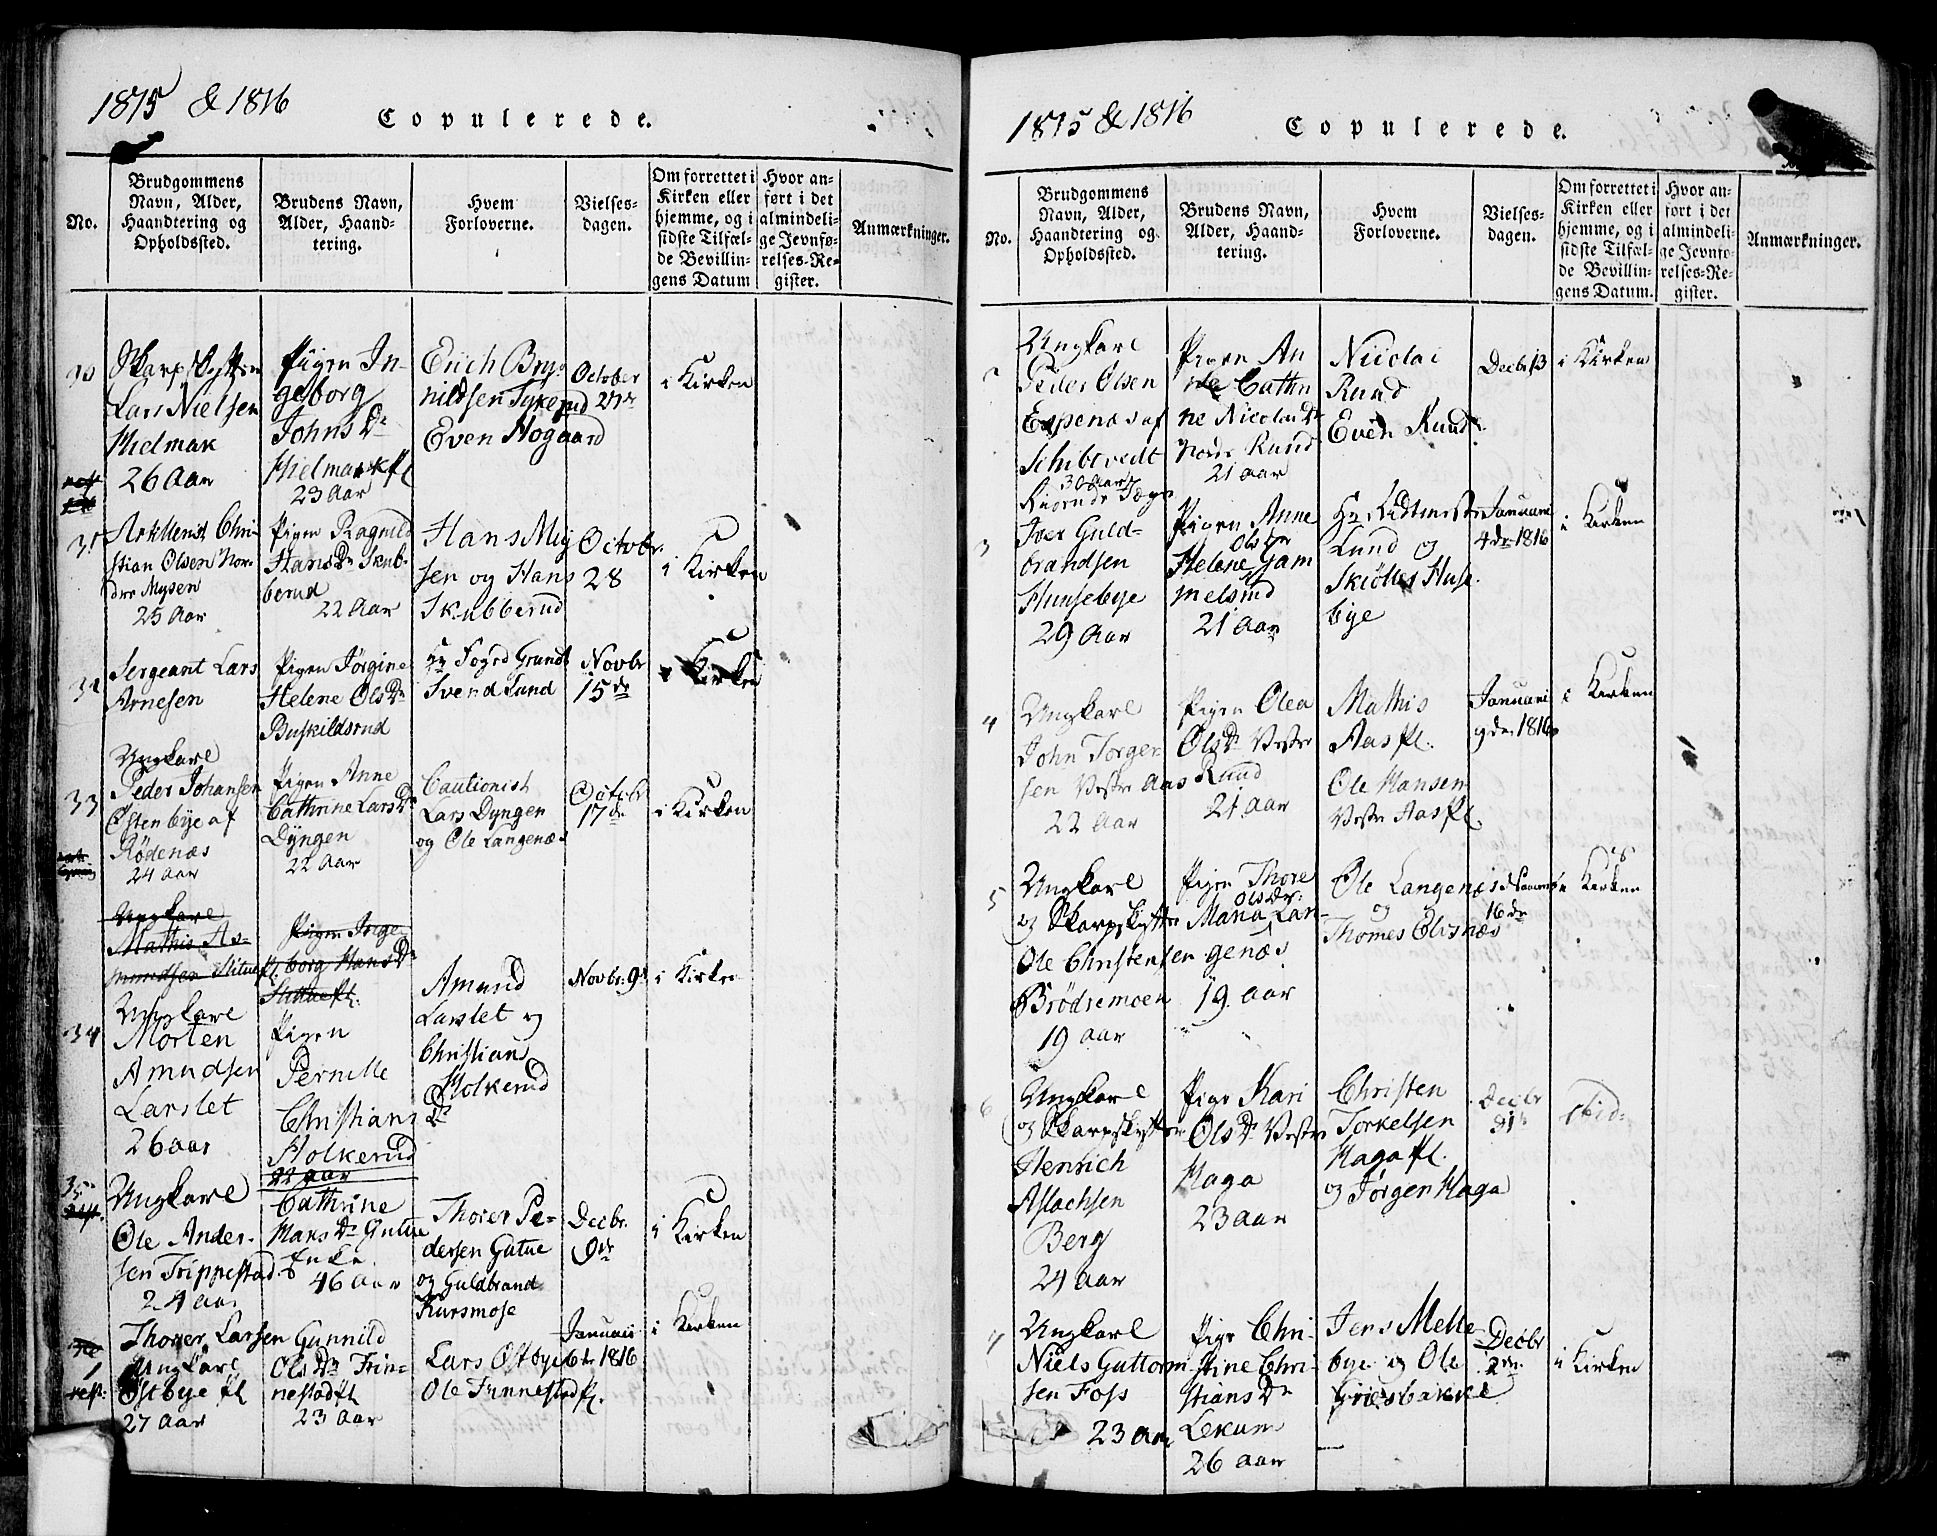 1815 & 1816
Copulerede.
No.
Brudgommens Navn, Alder, Haandtering og Opholdssted.
Brudens Navn, Alder, Haandtering.
Hvem Forloverne.
Vielsesdagen.
Om forrettet i Kirken eller hjemme, og i sidste Tilfælde Bevillingens Datum
Hvor anført i det almindelige Jevnførelses-Register.
Anmærkninger.
30
Skarpskytten
Lars Nielsen
Hielmark
26 Aar
Pigen In-
geborg
Johns Dr
Hielmark Pl
23 Aar
Erich Bry-
nildsen Tykerud
Even Hogaard
October
i Kirken
31
Christian Olsen Nor-
dre Mysen
25 Aar
Pigen Ragnild
Hans Dr Skub-
berud
22 Aar
Hans My
sen og Hans
Skubberud
Octobr.
28
i Kirken
32
Sergeant Lars
Arnesen
Pigen Jørgine
Helene Ols Dr
Buskildsrud
Hr Foged Grundt
Svend Sund
Novbr
15 de
i Kirken
33
Ungkarl
Peder Johansen
Østenbye af
Rødenæs
24 Aar
Pigen Anne
Cathrine Lars Dr
Dyngen
22 Aar
Cautionist
Lars Dyngen
og Ole Langenæs
Octobr
17 de
i Kirken
Ungkarl
Mathis As-
mundsen
Pigen Inge
borg Hans Dr
34
Ungkarl
Morten
Amundsen
Larslet
26 aar
Pigen
Pernille
Christians Dr
Holkerud
22 aar
Amund
Larslet og
Christian
Holkerud
Novbr. 9
i Kirken
35
Ungkarl
Ole Ander-
sen Trippestad
24 aar
Cathrine
Hans Dr Gutue
Enke
46 aar
Thorer Pe-
dersen Gutue
og Guldbrand
Kursmose
Decbr.
9 de
i Kirken
1
Thorer Larsen
Ungkarl
Østbye Pl
27 aar
Gunnild
Ols Dr Frin-
nestad Pl
23 Aar
Lars Østbye
Ole Finnestad Pl.
Januari
6 te 1816
i Kirken
1815 & 1816
Copulerede.
No.
Brudgommens Navn, Alder, Haandtering og Opholdssted.
Brudens Navn, Alder, Haandtering.
Hvem Forloverne.
Vielsesdagen.
Om forrettet i Kirken eller hjemme, og i sidste Tilfælde Bevillingens Datum.
Hvor anført i det almindelige Jevnførelses-Register.
Anmærkninger.
2
Ungkarl
Peder Olsen
Espenæs af
Schibtvedt
30 aar
Pigen An
ne Cathri
ne Nicolai Dr
Nordr Ruud
21 aar
Nicolai
Ruud
Even Ruud
Decbr 13
i Kirken
3
Iver Guld-
brandsen
Hunsebye
29 Aar
Pigen Anne
Ols Dr
Helene Gam
melsrud
21 Aar
Hr Ridtmestr
Lund og
Skiölles Huse
bye
Januari
4 de 1816
i Kirken
4
Ungkarl
John Torger
sen Vestre Aas
22 Aar
Pigen Olea
Ols Dr Vestre
Ruud
21 Aar
Mathis
Aas Pl.
Ole Hansen
Vestre Aas Pl.
Januari
9 de 1816
i Kirken
5
Ungkarl
og Skarpskytter
Ole Christensen
Brödremoen
19 aar
Pigen Thore
Ols Dr
Maria Lan-
genæs
19 aar
Ole Langenæs
og
Thomes Olisnæs
16 de
i Kirken
6
Ungkarl
og Skarpskytter
Henrich
Aslachsen
Berg
24 aar
Pige Kari
Ols Dr Vestre
Haga
23 aar
Christen
Torkelsen
Haga Pl.
og Jørgen Haga
Decbr
ibid:
7
Ungkarl
Niels Guttorm
sen Foss
23 aar
Pige Chri-
stine Chri-
stians Dr
Lekum
26 aar
Jens Melle
bye og Ole
Griesbakke
Decbr
2 den
i Kirken